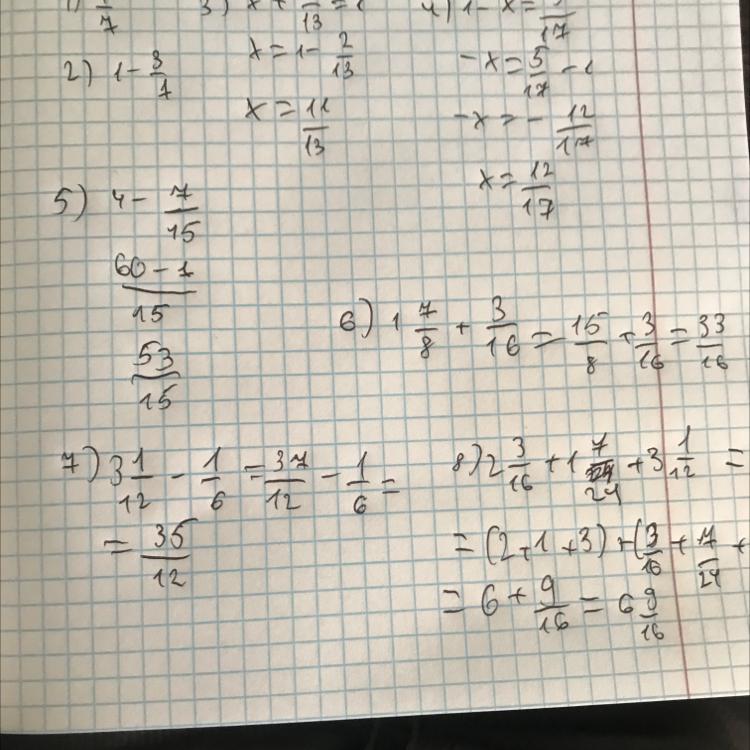 1) 1/7
3) x + /13 = 1
4) 1 - x = 5/17
2) 1 - 3/7
x = 1 - 2/13
-x = 5/17 - 1
x = 11/13
-x = - 12/17
x = 12/17
5) 4 - 7/15
60 - 7/15
53/15
6) 1 7/8 + 3/16 = 15/8 + 3/16 = 33/16
7) 3 1/12 - 1/6 = 37/12 - 1/6 =
= 35/12
8) 2 3/16 + 1 7/24 + 3 1/12 =
= (2+1+3) + (3/16 + 7/24 +
= 6 + 9/16 = 6 9/16